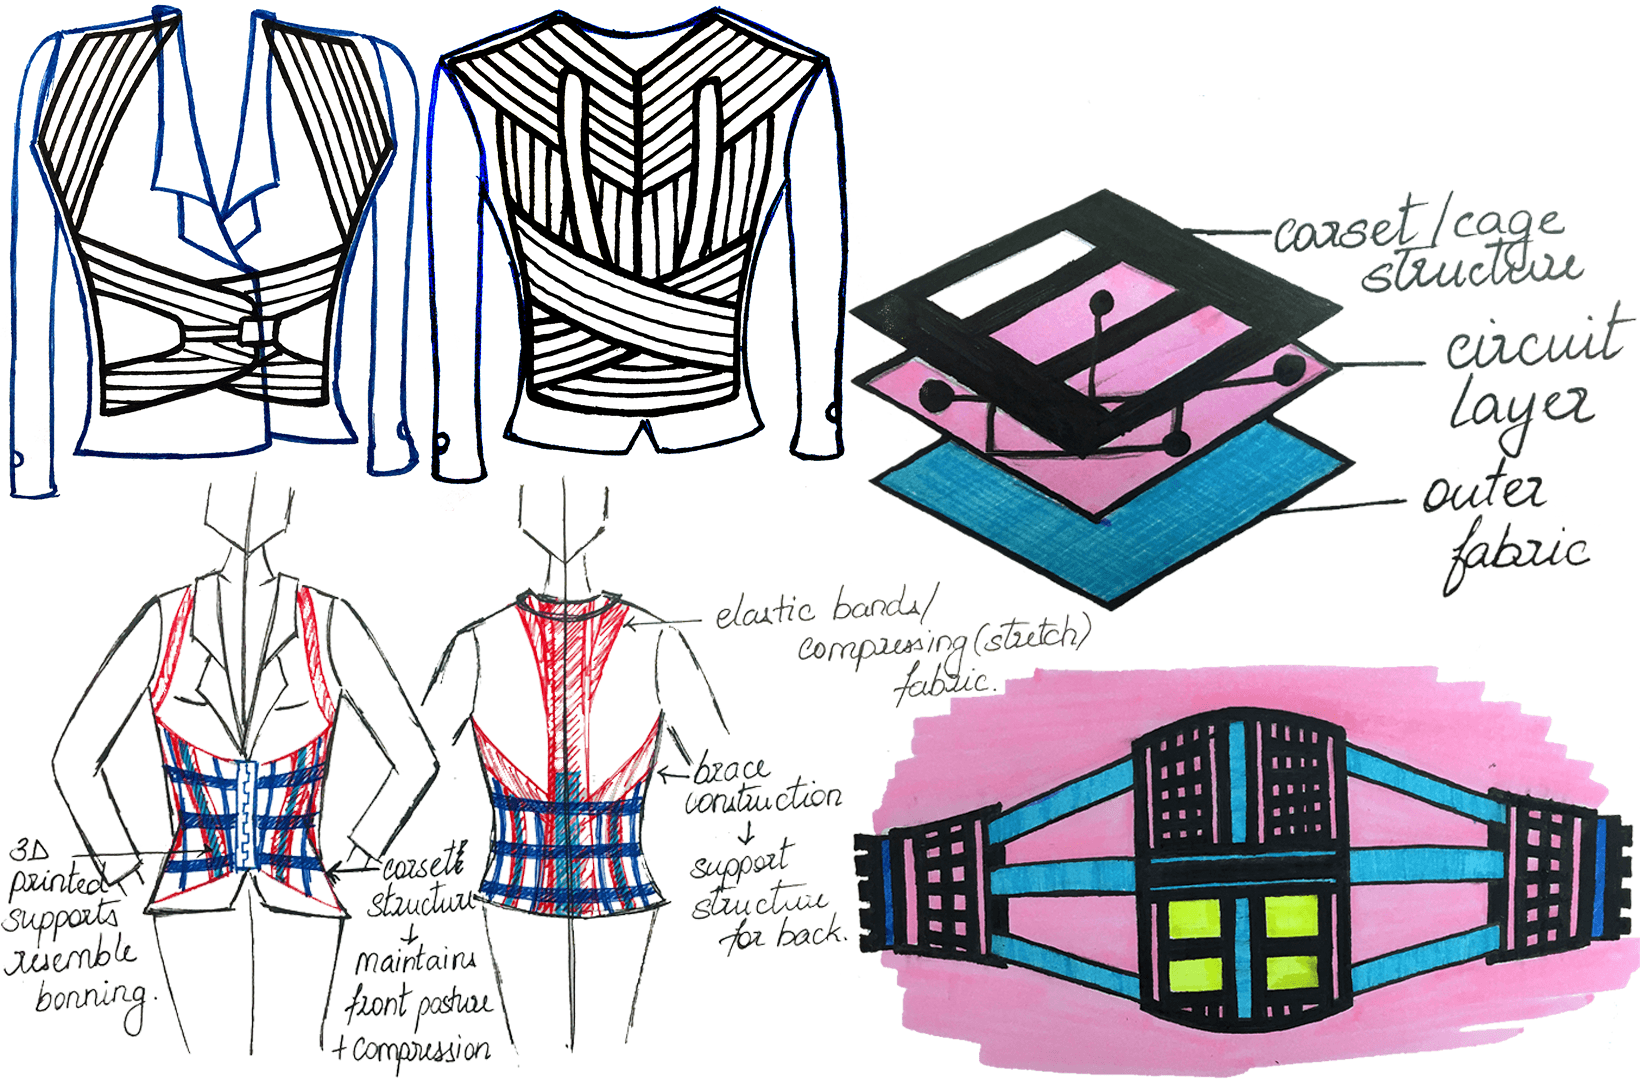 corset/cage
structure
circuit
layer
outer
fabric
elastic bands/
compressing (stretch)
fabric.
brace
construction
support
structure
for back.
3D
printed
supports
resemble
bonning.
corset
structure
maintains
front posture
+ compression